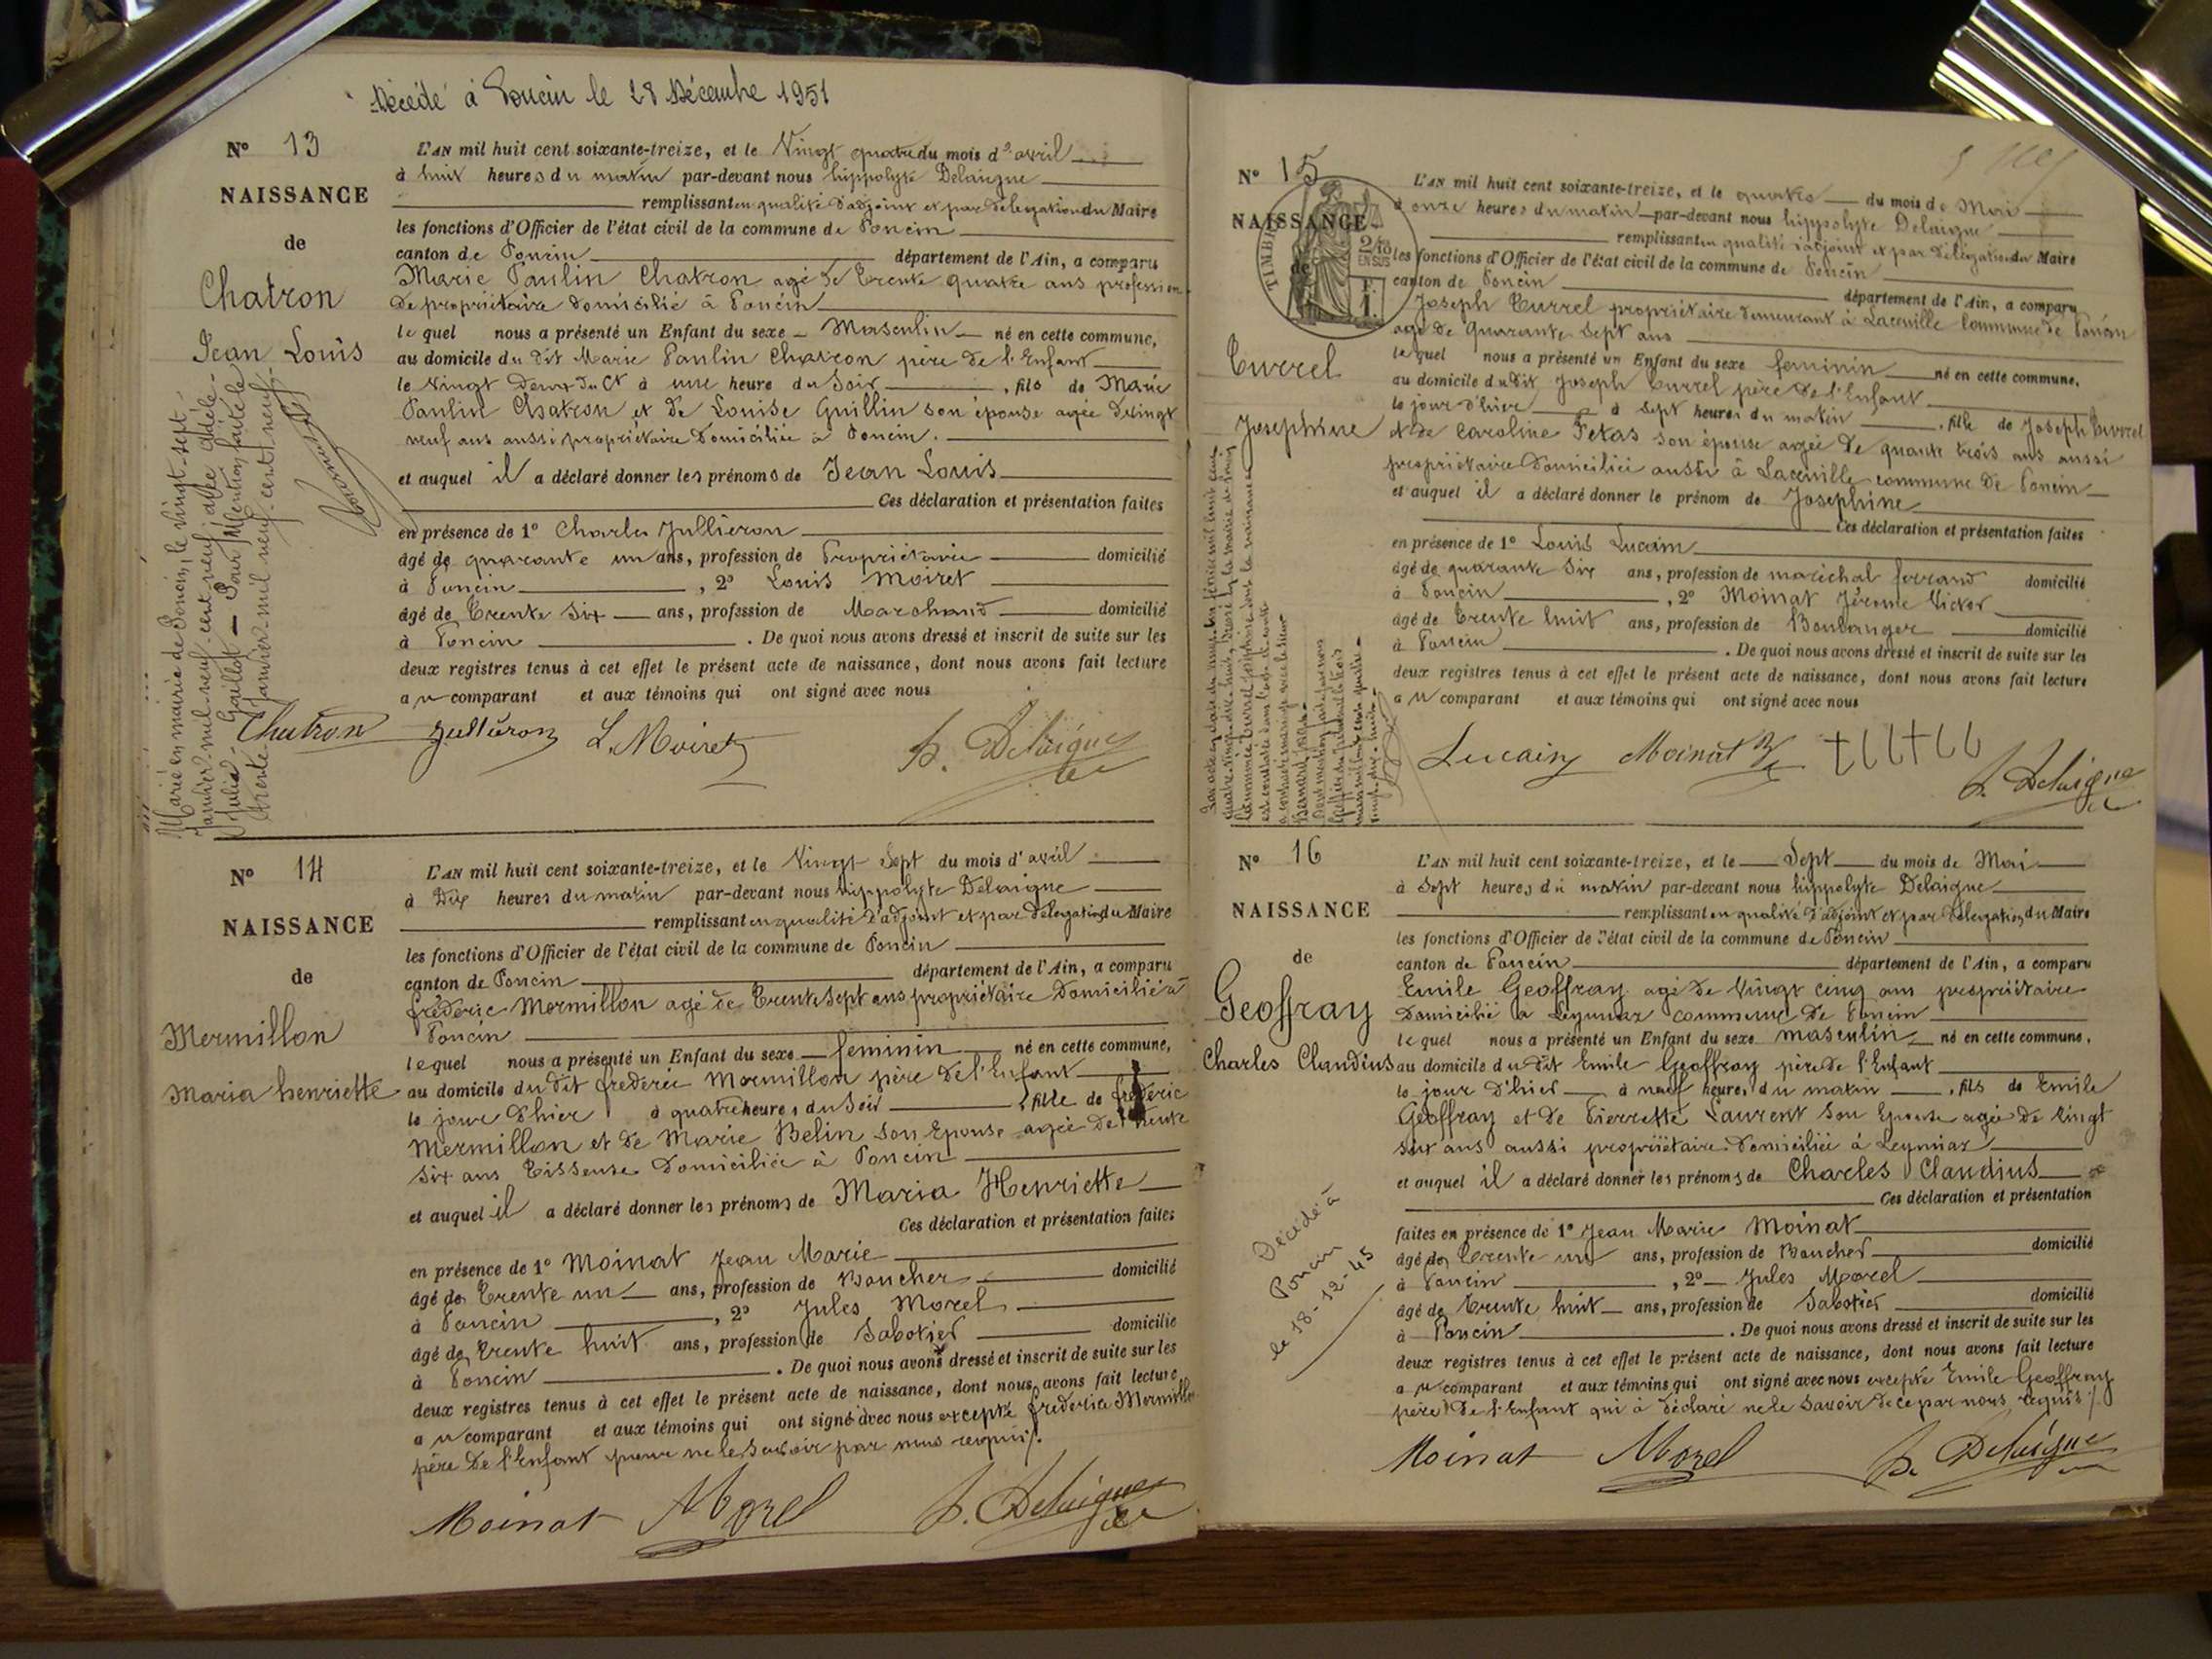 Décédé à Poncin le 28 Décembre 1951
N° 13
NAISSANCE
de
Chatron
Jean Louis
L'AN mil huit cent soixante-treize, et le Vingt quatre du mois d'avril
à huit heures du matin par-devant nous hippolyte Delaigue
remplissant en qualité d'adjoint et par délégation du Maire
les fonctions d'Officier de l'état civil de la commune de Poncin
canton de Poncin département de l'Ain, a comparu
Marie Paulin Chatron agé de Trente quatre ans profession
de propriétaire domicilié à Poncin
lequel nous a présenté un Enfant du sexe Masculin né en cette commune,
au domicile du dit Marie Paulin Chatron père de l'Enfant
le Vingt deux du Ct à une heure du Soir, fils de Marie
Paulin Chatron et de Louise Guillin son épouse agée de vingt
neuf ans aussi propriétaire domiciliée à Poncin.
et auquel il a déclaré donner les prénoms de Jean Louis
Ces déclaration et présentation faites
en présence de 1° Charles Jullieron
âgé de quarante un ans, profession de Propriétaire domicilié
à Poncin, 2° Louis Moiret
âgé de Trente Six ans, profession de Marchand domicilié
à Poncin. De quoi nous avons dressé et inscrit de suite sur les
deux registres tenus à cet effet le présent acte de naissance, dont nous avons fait lecture
au comparant et aux témoins qui ont signé avec nous
Marié en mairie de Poncin, le vingt-sept
Janvier mil neuf cent neuf avec Adèle
Julia Gaillot — Pour Mention faite le
trente Janvier mil neuf cent neuf.
Chatron Jullieron L. Moiret h. Delaigue
N° 14
NAISSANCE
de
Mermillon
Maria henriette
L'AN mil huit cent soixante-treize, et le Vingt Sept du mois d'avril
à Dix heures du matin par-devant nous hippolyte Delaigue
remplissant en qualité d'adjoint et par délégation du Maire
les fonctions d'Officier de l'état civil de la commune de Poncin
canton de Poncin département de l'Ain, a comparu
fréderic Mermillon agé de Trente Sept ans propriétaire Domicilié à
Poncin
lequel nous a présenté un Enfant du sexe feminin né en cette commune,
au domicile du dit frederic Mermillon père de l'Enfant
le jour d'hier à quatre heures du Soir, fille de frederic
Mermillon et de Marie Belin son Epouse agée de Trente
Six ans Tisseuse Domiciliée à Poncin
et auquel il a déclaré donner les prénoms de Maria Henriette
Ces déclaration et présentation faites
en présence de 1° Moinat Jean Marie
âgé de Trente un ans, profession de Boucher domicilié
à Poncin, 2° Jules Morel
âgé de Trente huit ans, profession de Sabotier domicilié
à Poncin. De quoi nous avons dressé et inscrit de suite sur les
deux registres tenus à cet effet le présent acte de naissance, dont nous avons fait lecture
au comparant et aux témoins qui ont signé avec nous excepté frederic Mermillon
père de l'Enfant pour ne le Savoir par nous requis.
Moinat Morel h. Delaigue
N° 15
NAISSANCE
de
TIMBRE
2/10 EN SUS
F. 1.
Turrel
Josephine
L'AN mil huit cent soixante-treize, et le quatre du mois de Mai
à onze heures du matin par-devant nous hippolyte Delaigue
remplissant en qualité d'adjoint et par délégation du Maire
les fonctions d'Officier de l'état civil de la commune de Poncin
canton de Poncin département de l'Ain, a comparu
Joseph Turrel propriétaire demeurant à Lacuville Commune de Poncin
agé de quarante Sept ans
lequel nous a présenté un Enfant du sexe feminin né en cette commune,
au domicile du dit Joseph Turrel père de l'Enfant
le jour d'hier à sept heures du matin, fille de Joseph Turrel
et de Caroline son épouse agée de quarante trois ans aussi
propriétaire domiciliée aussi à Lacuville commune de Poncin
et auquel il a déclaré donner le prénom de Josephine
Ces déclaration et présentation faites
en présence de 1° Louis Lucain
âgé de quarante Six ans, profession de maréchal ferrand domicilié
à Poncin, 2° Moinat Jérome Victor
âgé de Trente huit ans, profession de Boulanger domicilié
à Poncin. De quoi nous avons dressé et inscrit de suite sur les
deux registres tenus à cet effet le présent acte de naissance, dont nous avons fait lecture
au comparant et aux témoins qui ont signé avec nous
Lucain Moinat h. Delaigue
N° 16
NAISSANCE
de
Geoffray
Charles Claudius
L'AN mil huit cent soixante-treize, et le Sept du mois de Mai
à Sept heures du matin par-devant nous hippolyte Delaigue
remplissant en qualité d'adjoint et par délégation du Maire
les fonctions d'Officier de l'état civil de la commune de Poncin
canton de Poncin département de l'Ain, a comparu
Emile Geoffray agé de Vingt cinq ans propriétaire
Domicilié à Leymiaz commune de Poncin
lequel nous a présenté un Enfant du sexe masculin né en cette commune,
au domicile du dit Emile Geoffray père de l'Enfant
le jour d'hier à neuf heures du matin, fils de Emile
Geoffray et de Pierrette Laurent son Epouse agée de Vingt
six ans aussi propriétaire domiciliée à Leymiaz
et auquel il a déclaré donner les prénoms de Charles Claudius
Ces déclaration et présentation
faites en présence de 1° Jean Marie Moinat
âgé de Trente un ans, profession de Boucher domicilié
à Poncin, 2° Jules Morel
âgé de Trente huit ans, profession de Sabotier domicilié
à Poncin. De quoi nous avons dressé et inscrit de suite sur les
deux registres tenus à cet effet le présent acte de naissance, dont nous avons fait lecture
au comparant et aux témoins qui ont signé avec nous excepté Emile Geoffray
père de l'Enfant qui à déclaré ne le Savoir de ce par nous requis.
Décédé à
Poncin
le 18-12-45
Moinat Morel h. Delaigue